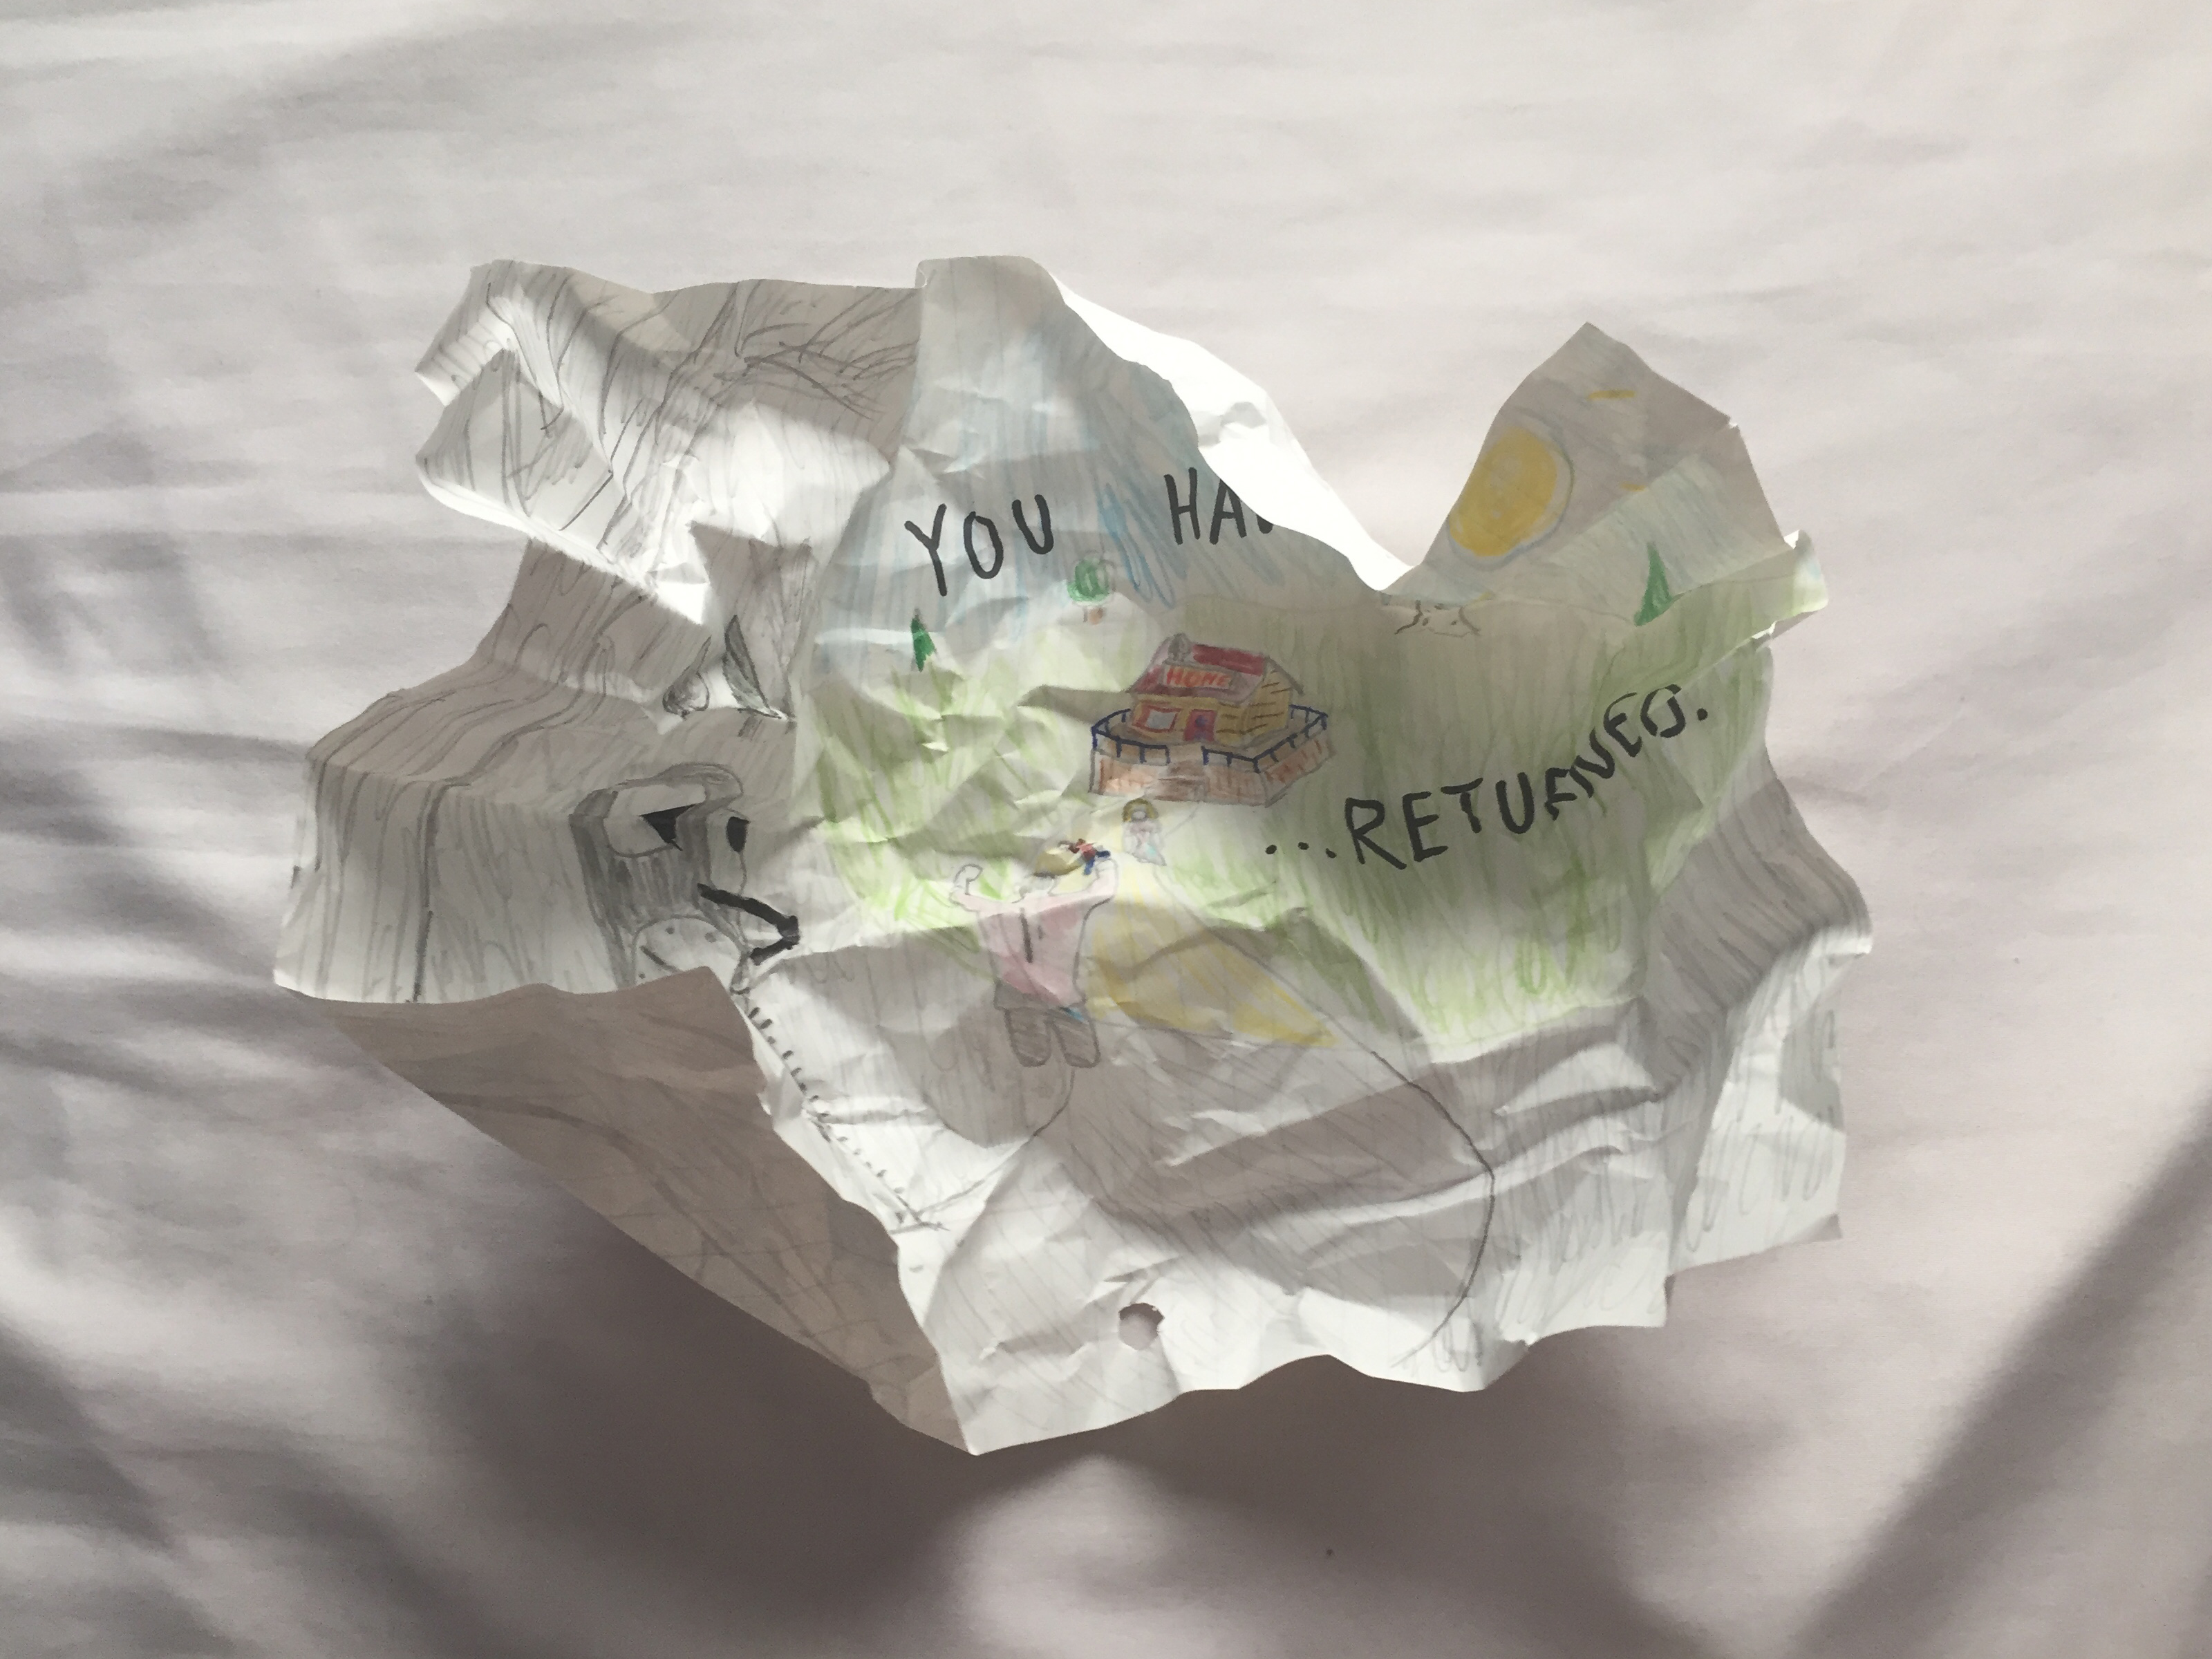 YOU HA
HOME
...RETURNED.